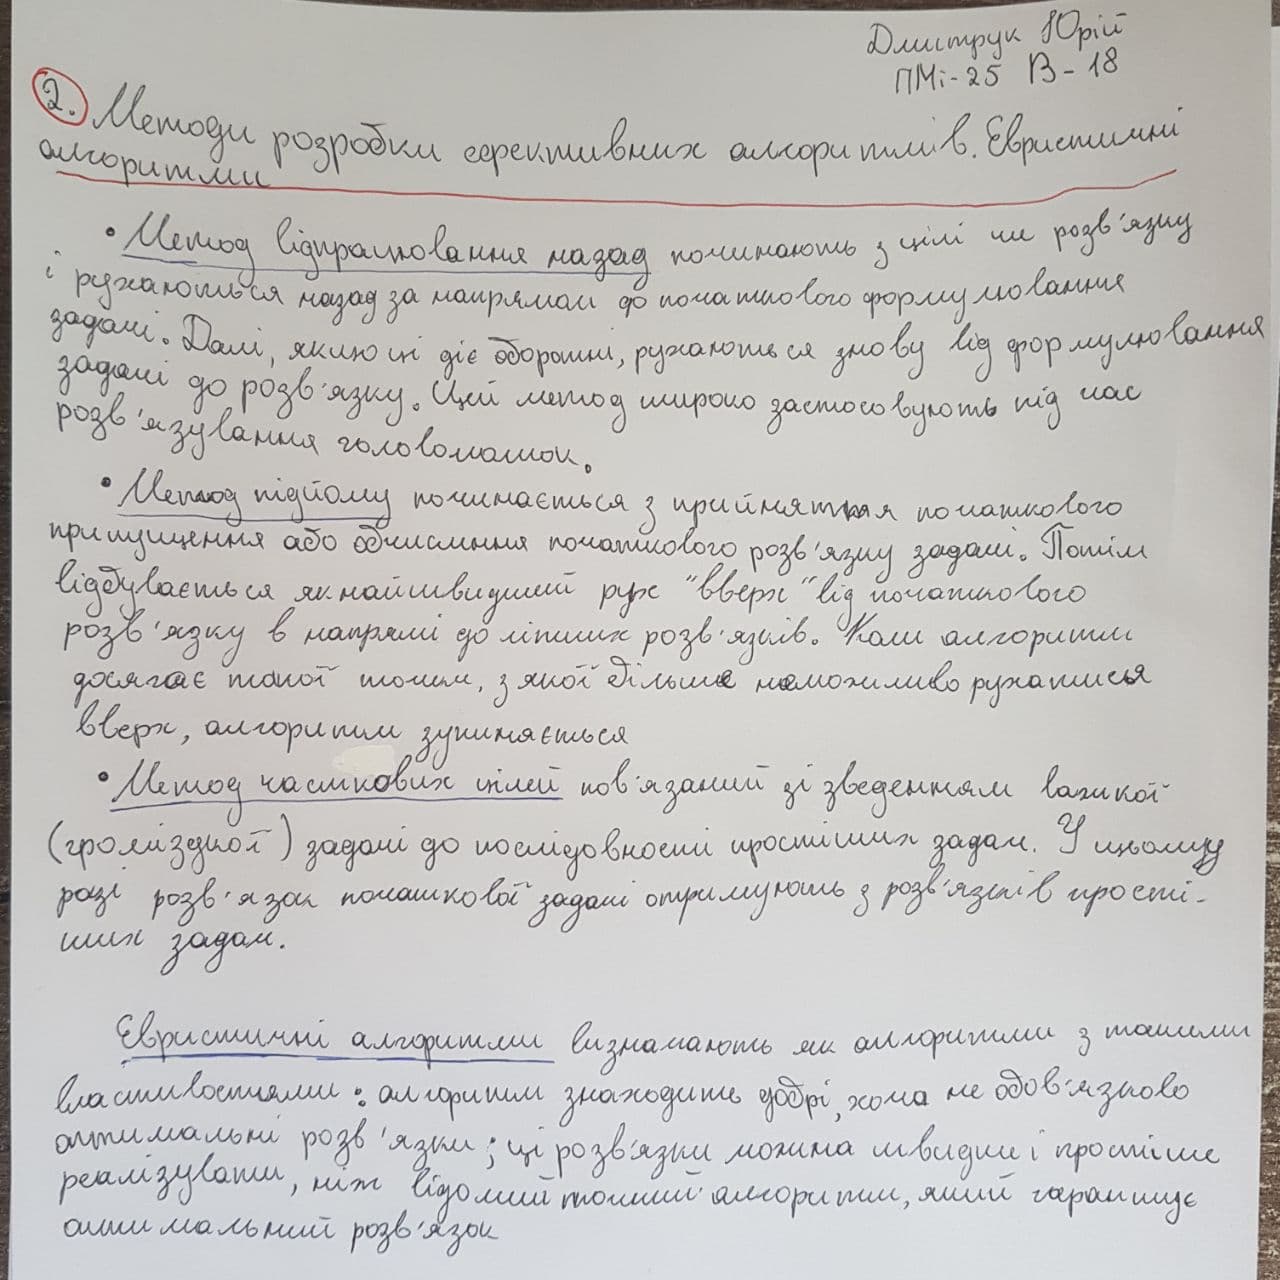 Дмитрук Юрій
ПМі-25 В-18
2. Методи розробки ефективних алгоритмів. Евристичні
алгоритми
• Метод відпрацювання назад починають з цілі чи розв'язку
і рухаються назад за напрямом до початкового формулювання
задачі. Далі, якщо ці дії оборотні, рухаються знову від формулювання
задачі до розв'язку. Цей метод широко застосовують під час
розв'язування головоломок.
• Метод підйому починається з прийняття початкового
припущення або обчислення початкового розв'язку задачі. Потім
відбувається якнайшвидший рух "вверх" від початкового
розв'язку в напрямі до ліпших розв'язків. Коли алгоритм
досягає такої точки, з якої більше неможливо рухатися
вверх, алгоритм зупиняється
• Метод часткових цілей пов'язаний зі зведенням важкої
(громіздкої) задачі до послідовності простіших задач. У цьому
разі розв'язок початкової задачі отримують з розв'язків прості-
ших задач.
Евристичні алгоритми визначають як алгоритми з такими
властивостями: алгоритм знаходить добрі, хоча не обов'язково
оптимальні розв'язки; ці розв'язки можна швидше і простіше
реалізувати, ніж відомий точний алгоритм, який гарантує
оптимальний розв'язок